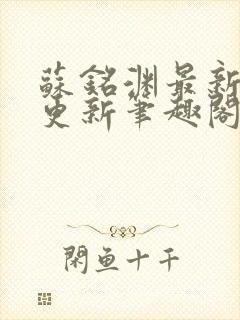 蘇銘淵最新
更新筆趣閣
閑魚十千